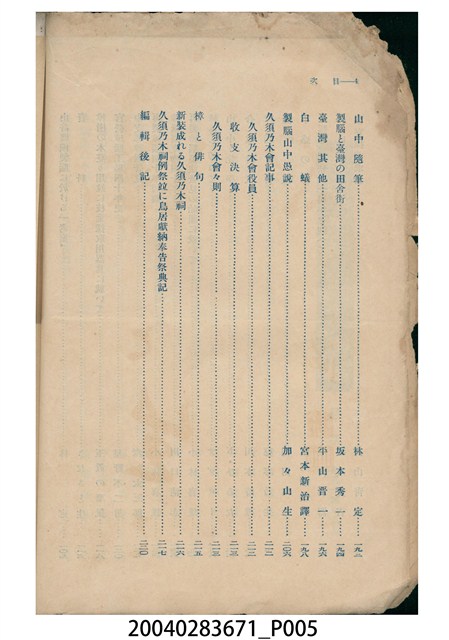 目次——4
山中隨筆……林 定……一九二
製腦と臺灣の田舍街……坂本秀一……一九四
臺灣其他……平山晋一……一九六
白蟻……宮本新治譯……一九八
製腦山中愚說……加々山生……二〇六
久須乃木會記事……二一二
久須乃木會役員……二一三
收支決算……二一三
久須乃木會々則……二一三
樟と俳句……二一五
新裝成れる久須乃木祠……二一六
久須乃木祠例祭竝に鳥居獻納奉告祭典記……二一七
編輯後記……二二〇
20040283671_P005